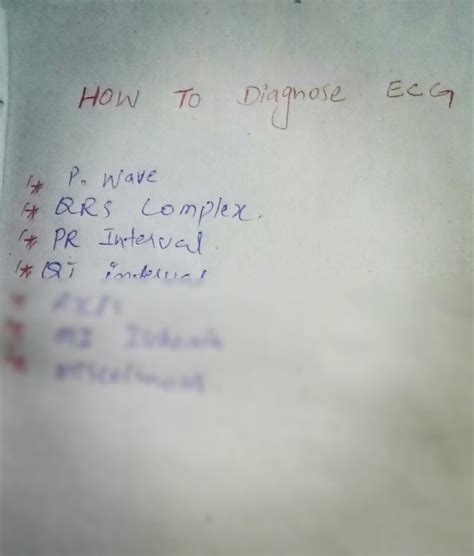 HOW TO Diagnose ECG
P. Wave
QRS Complex.
PR Interval.
QT interval
AXIS
MI